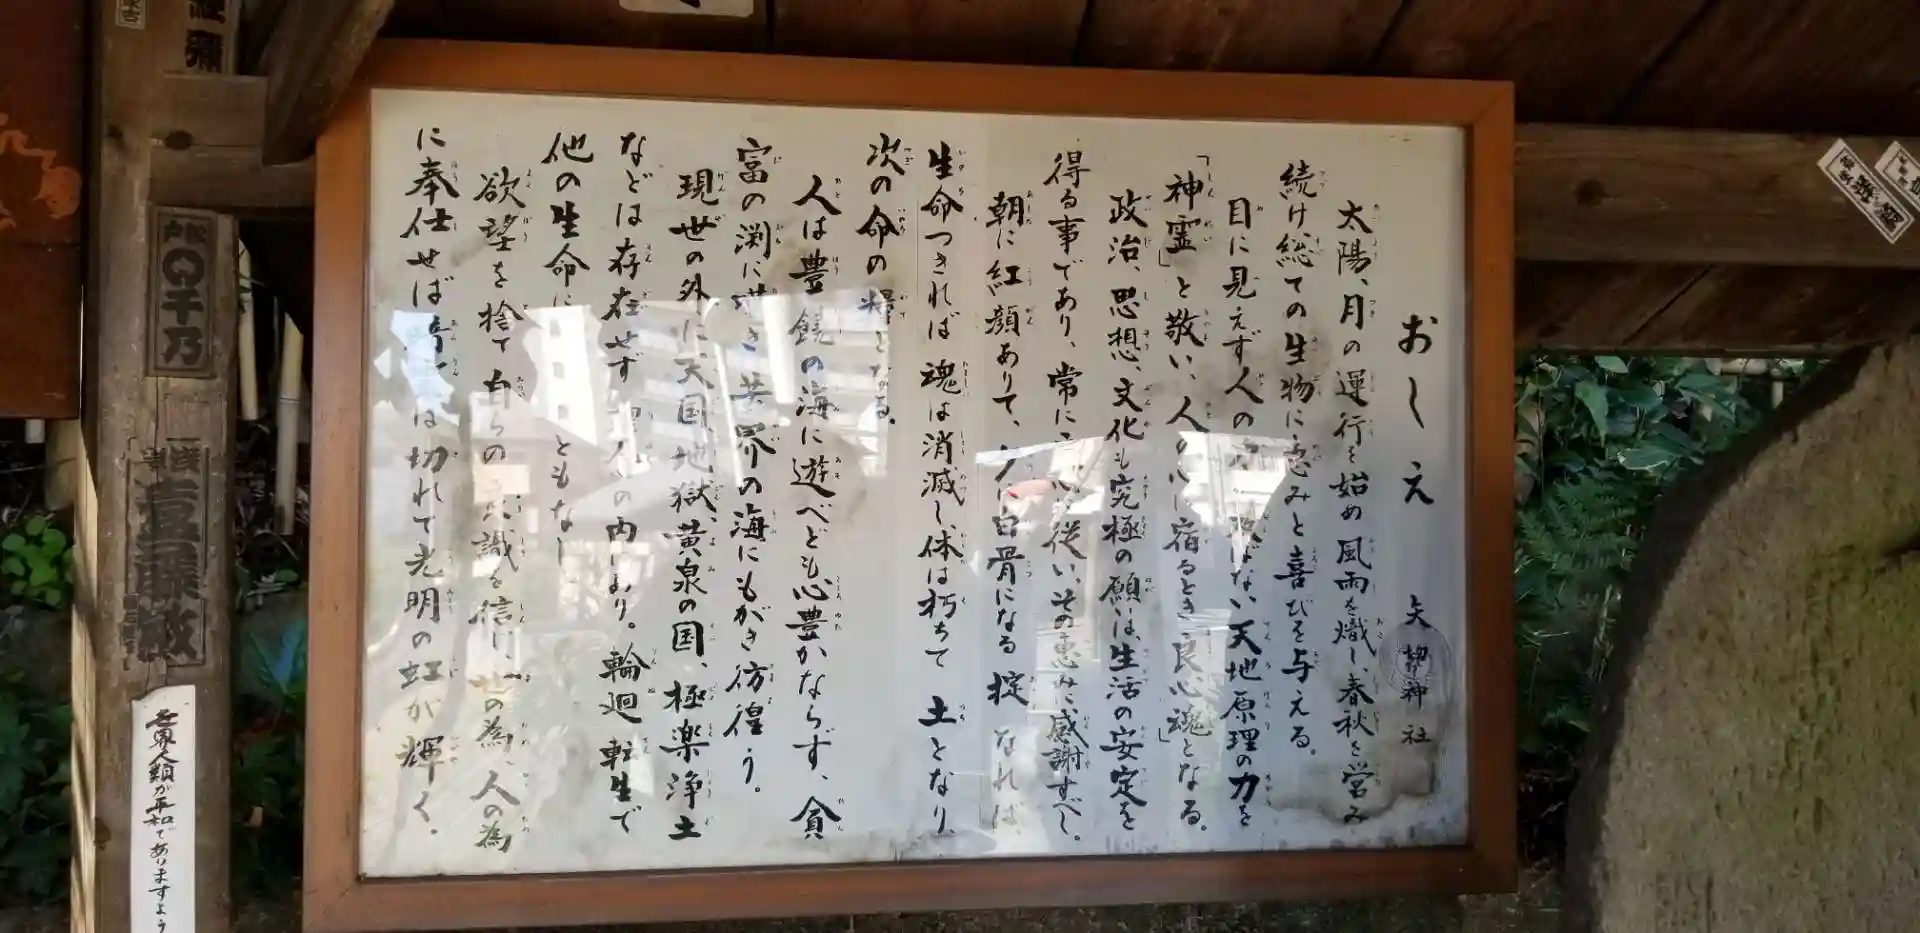 おしえ
矢先神社
太陽、月の運行を始め風雨を熾し、春秋を営み
続け総ての生物に恵みと喜びを与える。
目に見えず人の及ばない天地原理の力を
「神霊」と敬い、人の心に宿るとき「良心魂」となる。
政治、思想、文化も究極の願いは、生活の安定を
得る事であり、常に 従い、その恵みに感謝すべし。
朝に紅顔ありて、夕に白骨になる掟なれば、
生命つきれば魂は消滅し、体は朽ちて土となり、
次の命の糧となる。
人は豊饒の海に遊べども心豊かならず、貪
富の渕に 苦界の海にもがき彷徨う。
現世の外に天国、地獄、黄泉の国、極楽浄土
などは存在せず 人の内にあり。輪廻転生で
他の生命に ともなし
欲望を捨て自らの 識を信じ、世の為、人の為
に奉仕せば は切れて光明の虹が輝く。
世界人類が平和でありますよう
千乃